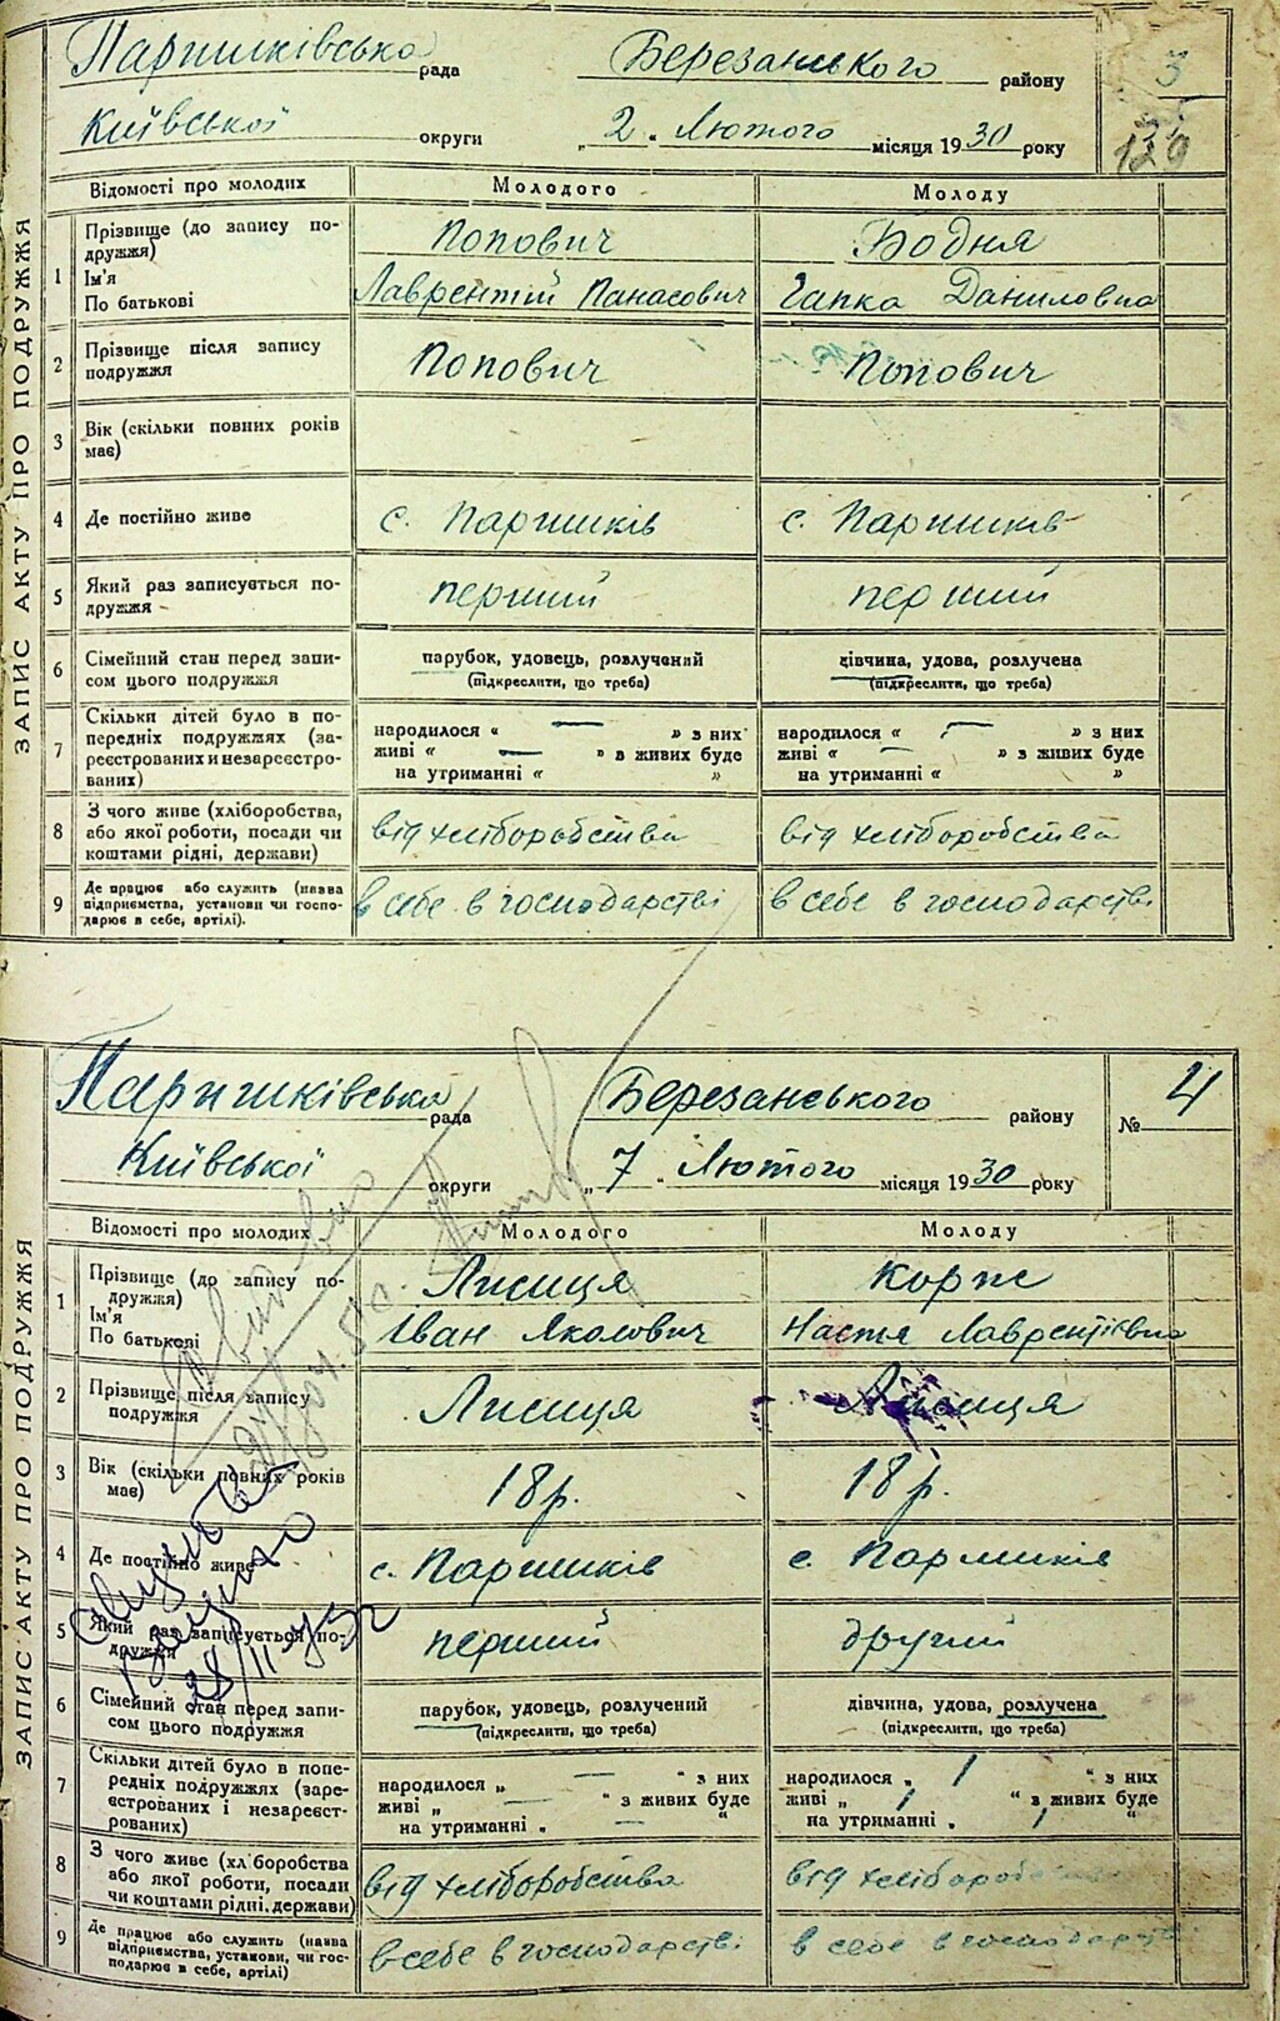 ЗАПИС АКТУ ПРО ПОДРУЖЖЯ
Паришківська рада Березанського району 3
Київської округи „2“ Лютого місяця 1930 року 129
Відомості про молодих Молодого Молоду
1 Прізвище (до запису по- Попович Бодня
дружжя)
Ім'я Лаврентій Панасович Гапка Даниловна
По батькові
2 Прізвище після запису Попович Попович
подружжя
3 Вік (скільки повних років
має)
4 Де постійно живе с. Паришків с. Паришків
5 Який раз записується по- перший перший
дружжя
6 Сімейний стан перед запи- парубок, удовець, розлучений дівчина, удова, розлучена
сом цього подружжя (підкреслити, що треба) (підкреслити, що треба)
7 Скільки дітей було в по- народилося « — » з них народилося « — » з них
передніх подружжях (за- живі « — » в живих буде живі « — » з живих буде
реєстрованих и незареєстро- на утриманні « » на утриманні « »
ваних)
8 З чого живе (хліборобства, від хліборобства від хліборобства
або якої роботи, посади чи
коштами рідні, держави)
9 Де працює або служить (назва в себе в господарстві в себе в господарстві
підприємства, установи чи госпо-
дарює в себе, артілі).
ЗАПИС АКТУ ПРО ПОДРУЖЖЯ
Паришківська рада Березанського району № 4
Київської округи „7“ Лютого місяця 1930 року
Відомості про молодих Молодого Молоду
1 Прізвище (до запису по- Лисиця Корж
дружжя)
Ім'я Іван Яколович Настя Лаврентіївна
По батькові
2 Прізвище після запису Лисиця Лисиця
подружжя
3 Вік (скільки повних років 18 р. 18 р.
має)
4 Де постійно живе с. Паришків с. Паришків
5 Який раз записується по- перший другий
дружжя
28/II
6 Сімейний стан перед запи- парубок, удовець, розлучений дівчина, удова, розлучена
сом цього подружжя (підкреслити, що треба) (підкреслити, що треба)
7 Скільки дітей було в попе- народилося „ — “ з них народилося „ 1 “ з них
редніх подружжях (заре- живі „ — “ з живих буде живі „ 1 “ з живих буде
єстрованих і незареєст- на утриманні „ — “ на утриманні „ 1 “
рованих)
8 З чого живе (хліборобства від хліборобства від хліборобства
або якої роботи, посади
чи коштами рідні, держави)
9 Де працює або служить (назва в себе в господарстві в себе в господарстві
підприємства, установи, чи гос-
подарює в себе, артілі)